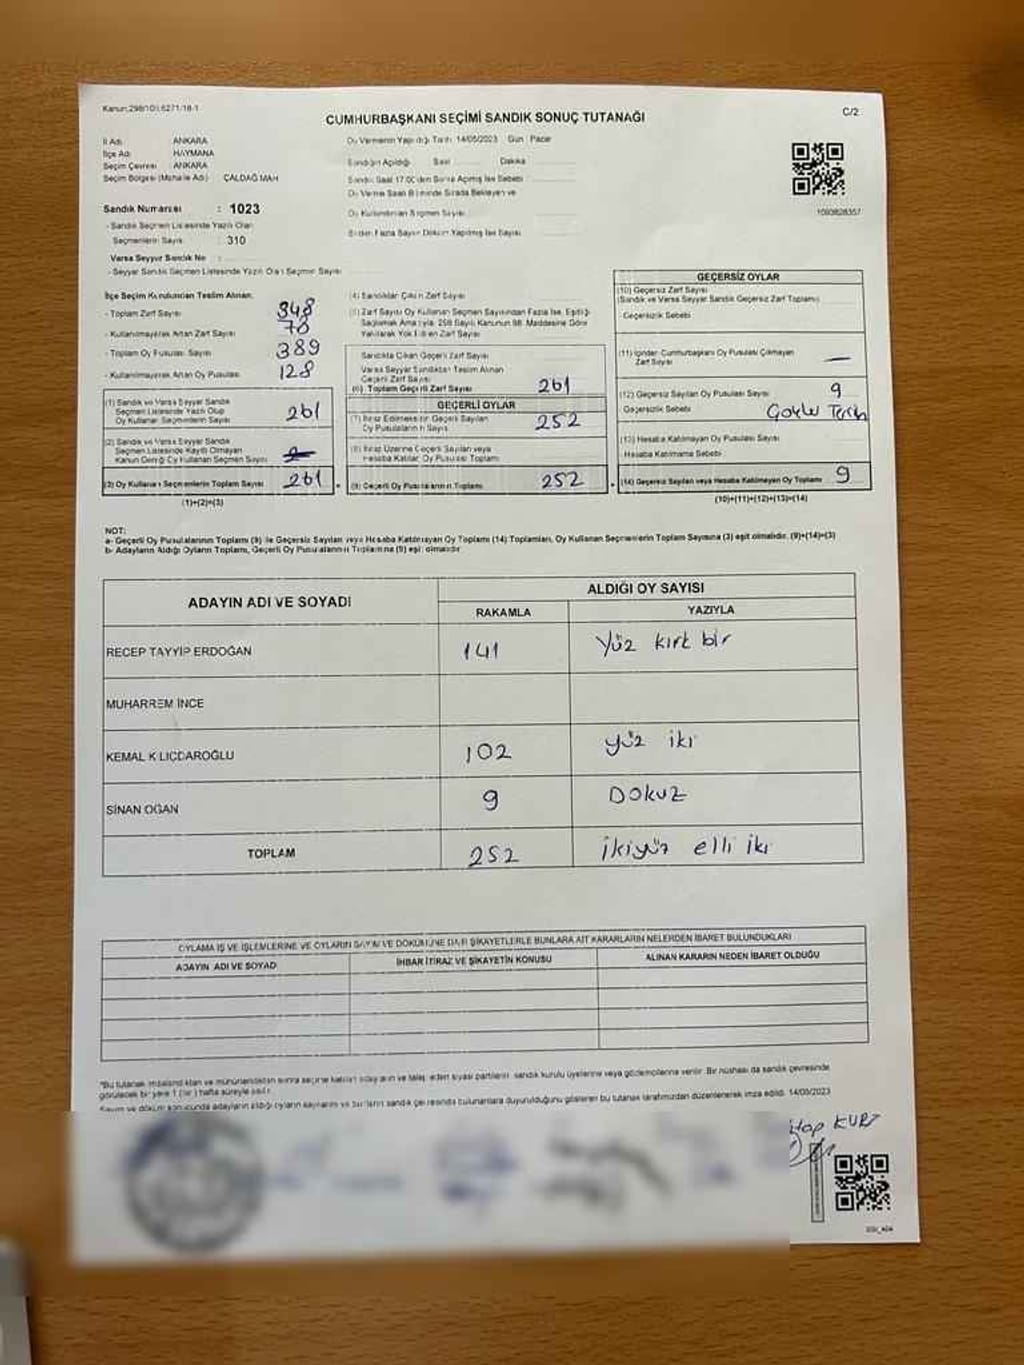 Kanun:298/101;6271/18-1
C/2
CUMHURBAŞKANI SEÇİMİ SANDIK SONUÇ TUTANAĞI
İl Adı ANKARA
İlçe Adı HAYMANA
Seçim Çevresi ANKARA
Seçim Bölgesi (Mahalle Adı) ÇALDAĞ MAH
Sandık Numarası : 1023
- Sandık Seçmen Listesinde Yazılı Olan
Seçmenlerin Sayısı : 310
Varsa Seyyar Sandık No :
- Seyyar Sandık Seçmen Listesinde Yazılı Olan Seçmen Sayısı
Oy Vermenin Yapıldığı Tarih 14/05/2023 Gün Pazar
Sandığın Açıldığı Saat Dakika
Sandık Saat 17.00'den Sonra Açılmış İse Sebebi
Oy Verme Saati Bitiminde Sırada Bekleyen ve
Oy Kullandırılan Seçmen Sayısı
Birden Fazla Sayım Döküm Yapılmış İse Sayısı
1093828357
İlçe Seçim Kurulundan Teslim Alınan:
- Toplam Zarf Sayısı 348
- Kullanılmayarak Artan Zarf Sayısı 78
- Toplam Oy Pusulası Sayısı 389
- Kullanılmayarak Artan Oy Pusulası 128
(1) Sandık ve Varsa Seyyar Sandık
Seçmen Listesinde Yazılı Olup
Oy Kullanan Seçmenlerin Sayısı 261
(2) Sandık ve Varsa Seyyar Sandık
Seçmen Listesinde Kayıtlı Olmayan
Kanun Gereği Oy Kullanan Seçmen Sayısı
(3) Oy Kullanan Seçmenlerin Toplam Sayısı 261
(1)+(2)=(3)
(4) Sandıktan Çıkan Zarf Sayısı
(5) Zarf Sayısı Oy Kullanan Seçmen Sayısından Fazla İse, Eşitliği
Sağlamak Amacıyla; 298 Sayılı Kanunun 98. Maddesine Göre
Yakılarak Yok Edilen Zarf Sayısı
Sandıkta Çıkan Geçerli Zarf Sayısı
Varsa Seyyar Sandıktan Teslim Alınan
Geçerli Zarf Sayısı
(6) Toplam Geçerli Zarf Sayısı 261
GEÇERLİ OYLAR
(7) İtiraz Edilmeksizin Geçerli Sayılan
Oy Pusulalarının Sayısı 252
(8) İtiraz Üzerine Geçerli Sayılan veya
Hesaba Katılan Oy Pusulası Toplamı
(9) Geçerli Oy Pusulalarının Toplamı 252
GEÇERSİZ OYLAR
(10) Geçersiz Zarf Sayısı
(Sandık ve Varsa Seyyar Sandık Geçersiz Zarf Toplamı)
Geçersizlik Sebebi
(11) İçinden Cumhurbaşkanı Oy Pusulası Çıkmayan
Zarf Sayısı —
(12) Geçersiz Sayılan Oy Pusulası Sayısı 9
Geçersizlik Sebebi
(13) Hesaba Katılmayan Oy Pusulası Sayısı
Hesaba Katılmama Sebebi
(14) Geçersiz Sayılan veya Hesaba Katılmayan Oy Toplamı 9
(10)+(11)+(12)+(13)=(14)
NOT:
a- Geçerli Oy Pusulalarının Toplamı (9) ile Geçersiz Sayılan veya Hesaba Katılmayan Oy Toplamı (14) Toplamları, Oy Kullanan Seçmenlerin Toplam Sayısına (3) eşit olmalıdır. (9)+(14)=(3)
b- Adayların Aldığı Oyların Toplamı, Geçerli Oy Pusulalarının Toplamına (9) eşit olmalıdır
ADAYIN ADI VE SOYADI
ALDIĞI OY SAYISI
RAKAMLA YAZIYLA
RECEP TAYYİP ERDOĞAN 141 Yüz kırk bir
MUHARREM İNCE
KEMAL KILIÇDAROĞLU 102 yüz iki
SİNAN OĞAN 9 DOKUZ
TOPLAM 252 ikiyüz elli iki
OYLAMA İŞ VE İŞLEMLERİNE VE OYLARIN SAYIM VE DÖKÜMÜNE DAİR ŞİKAYETLERLE BUNLARA AİT KARARLARIN NELERDEN İBARET BULUNDUKLARI
ADAYIN ADI VE SOYADI İHBAR İTİRAZ VE ŞİKAYETİN KONUSU ALINAN KARARIN NEDEN İBARET OLDUĞU
görülecek bir yere 1 (bir) hafta süreyle asılır.
Sayım ve döküm sonucunda adayların aldığı oyların sayılarını ve bunların sandık çevresinde bulunanlara duyurulduğunu gösteren bu tutanak tarafımızdan düzenlenerek imza edildi. 14/05/2023
KURT